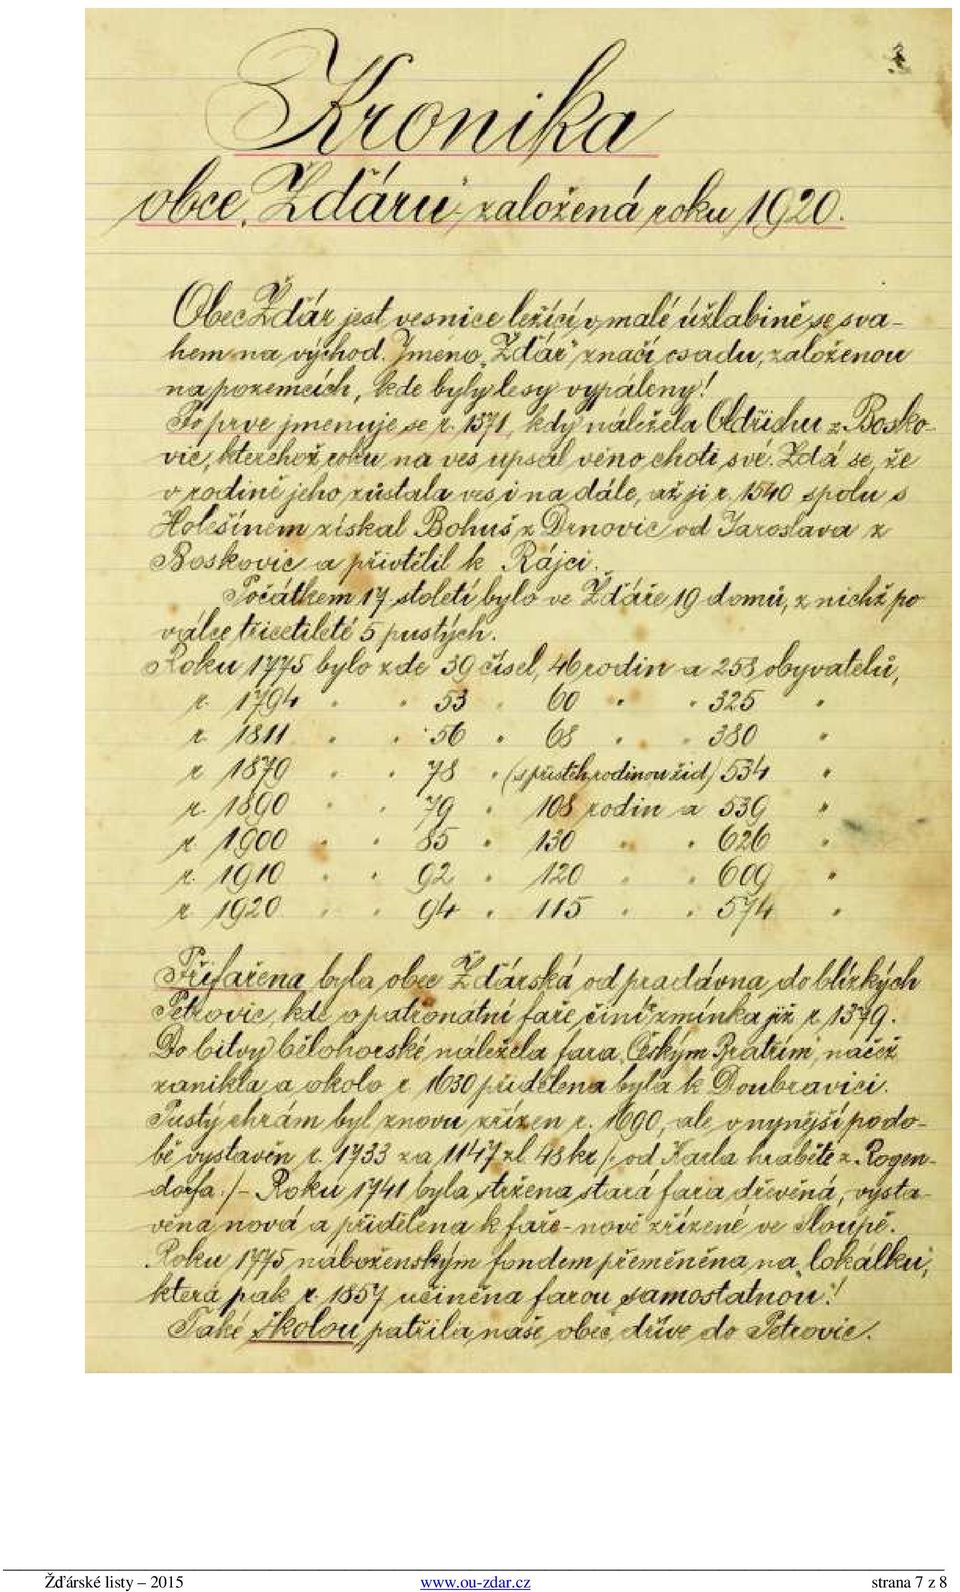 Kronika
obce „Žďáru“ založená roku 1920.
Obec Žďár jest vesnice ležící v malé úžlabině se sva-
hem na východ. Jméno „Žďár“ značí osadu, založenou
na pozemcích, kde byly lesy vypáleny!
Po prve jmenuje se r. 1371, kdy náležela Oldřichu z Bosko-
vic, kteréhož roku na ves upsal věno choti své. Zdá se, že
v rodině jeho zůstala ves i na dále, až ji r. 1540 spolu s
Holešínem získal Bohuš z Drnovic od Jaroslava z
Boskovic a přivtělil k Rájci.
Počátkem 17 století bylo ve Žďáře 19 domů, z nichž po
válce třicetileté 5 pustých.
Roku 1775 bylo zde 39 čísel, 46 rodin a 253 obyvatelů,
r. 1794 " " 53 " 60 " " 325 "
r. 1811 " " 56 " 68 " " 380 "
r 1870 " " 78 " (s přistěh. rodinou žid) 534 "
r. 1890 " " 79 " 108 rodin a 539 "
r. 1900 " " 85 " 130 " " 626 "
r. 1910 " " 92 " 120 " " 609 "
r 1920 " " 94 " 115 " " 574 "
Přifařena byla obec Žďárská od pradávna do blízkých
Petrovic, kde o patronátní faře činí zmínka již r. 1379.
Do bitvy bělohorské náležela fara „Českým Bratřím“, načež
zanikla a okolo r. 1630 přidělena byla k Doubravici.
Pustý chrám byl znovu zřízen r. 1690, ale v nynější podo-
bě vystavěn r. 1733 za 1147 zl. 48 kr /: od Karla hraběte z Rogen-
dorfa :/ – Roku 1741 byla stržena stará fara dřevěná, vysta-
věna nová a přidělena k faře – nově zřízené ve Sloupě.
Roku 1775 náboženským fondem přeměněna na „lokálku“,
která pak r. 1857 učiněna farou „samostatnou“!
Také školou patřila naše obec dříve do Petrovic.
Žďárské listy – 2015 www.ou-zdar.cz strana 7 z 8